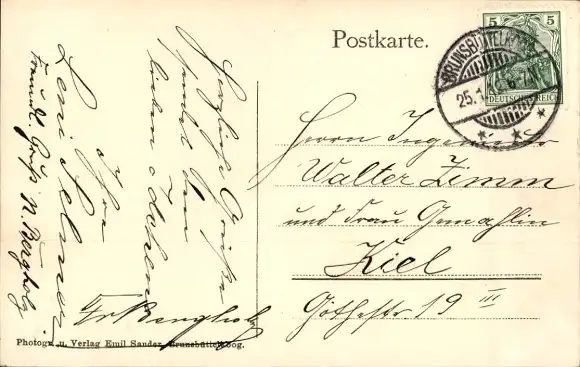 Postkarte.
5 5
BRUNSBÜTTELKOOG
25.1
DEUTSCHES REICH
Herrn Ingenieur
Walter Zimm
und Frau Gemahlin
Kiel
Göthestr 19 III
Herzliche Grüße
sendet Ihnen
Ihre
Freundl. Gruß N. Bergholz
Fr Bergholz
Photogr. u. Verlag Emil Sander, Brunsbüttelkoog.